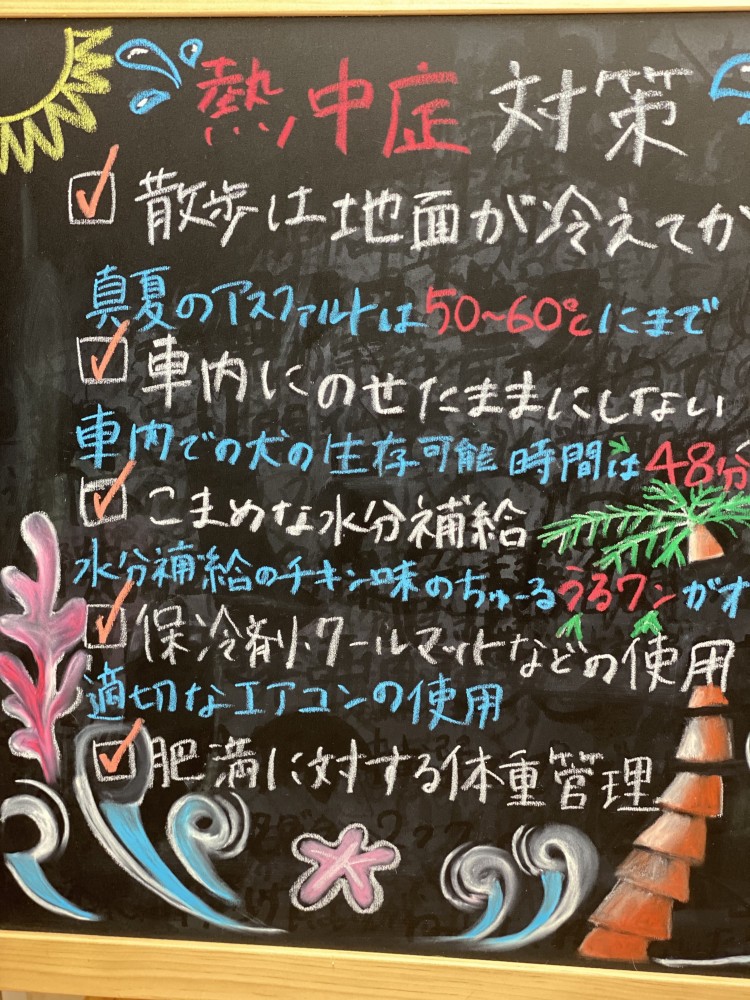 熱中症 対策
散歩は地面が冷えてか
真夏のアスファルトは50~60℃にまで
車内にのせたままにしない
車内での犬の生存可能時間は48分
こまめな水分補給
水分補給のチキン味のちゅーるうるワンがオ
保冷剤、クールマットなどの使用
適切なエアコンの使用
肥満に対する体重管理